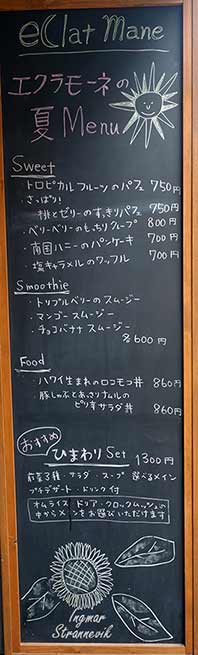 eclat Mane
エクラモーネの
夏 Menu
Sweet
・トロピカルフルーツのパフェ 750円
・さっぱり!
桃とゼリーのすっきりパフェ 750円
・ベリーベリーのもっちりクレープ 800円
・南国ハニーのパンケーキ 700円
・塩キャラメルのワッフル 700円
Smoothie
・トリプルベリーのスムージー
・マンゴースムージー
・チョコバナナスムージー
各600円
Food
・ハワイ生まれのロコモコ丼 860円
・豚しゃぶとあさりナムルの
ピリ辛サラダ丼 860円
おすすめ
ひまわり Set 1300円
前菜3種・サラダ・スープ 選べるメイン
プチデザート・ドリンク付
オムライス・ドリア・クロックムッシュの
中からメインをお選びいただけます
Ingmar
Strannevik